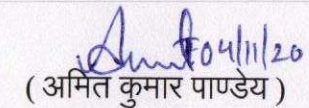 Amit 04/11/20
( अमित कुमार पाण्डेय )